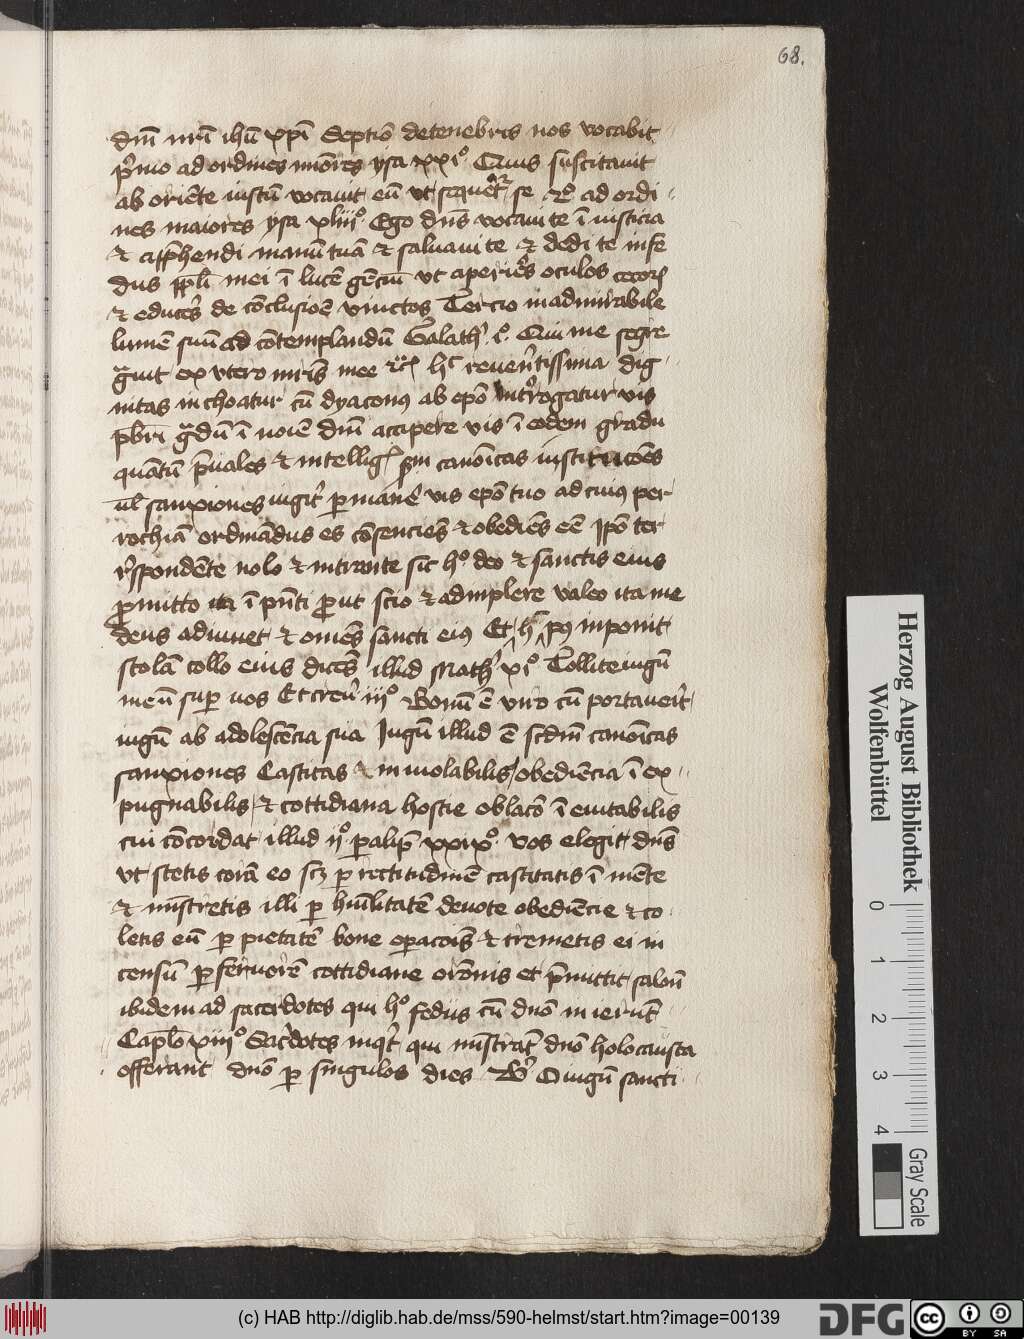 68.
dnī nrī ihū xpī Septiō de tenebris nos vocabit
pͥmo ad ordines mīores ysa xxiͦ. Quis suscitauit
ab oriēte iustū vocauit eū vt sequeretr se 2ͦ ad ordi
nes maiores ysa xliiͦ. Ego dns vocaui te ī iusticia
& app̄hendi manū tuā & saluaui te & dedi te in fe
dus ppl̄i mei ī lucē gēciū vt aperies oculos cecorꝫ
& educes de cōclusioē vinctos Tercio in admirabile
lumē suū ad cōtemplandū Galathꝰ iͦ. Qui me segre
gͣuit ex vtero mris mee hec reuerētissima dig
nitas inchoatur cū dyaconꝰ ab epō introgatur vis
pbr̄i gͣdū ī noīe dnī accipere vis ī eodem gradu
quātū p̄uales & intelligꝭ scdm canōicas institucōes
ul̄ sanxiones iugitꝰ ꝑmanē vis epō tuo ad cuiꝰ per
rochiā ordinādus es cōsenciēs & obediēs eē Ipō ter
respondēte volo & intrante sic hͦ deo & sanctis eius
ꝓmitto ita ī pn̄ti ꝓut scio & adinplere valeo ita me
deus adiuuet & omēs sancti eiꝰ Et h pꝰ inponit
stolā collo eius dicēs illud Mathꝰ xiͦ Tollite iugū
meū sup̄ uos Et treñ iiiͦ Bonū ē viro cū portaverit
iugū ab adolescēcia sua Iugū illud ē scdm canōicas
sanxiones Castitas inuiolabilis / obediēcia ī ex
pugnabilis & cottidiana hostie oblacō ī euitabilis
cui cōcordat illud iiͦ palip̄ xxixͦ. Vos elegit dns
vt stetis corā eo scꝫ ꝑ rectitudinē castitatis ī mēte
& mīstretis illi ꝑ hūilitatē deuote obediēcie & co
letis eū ꝑ pietatē bone opacōis & cremetis ei in
censū ꝑ feruorē cottidiane orōnis et p̄mittit
ibidem ad sacerdotes qui hͦ fedus cū dnō inierūt
Caplō xiiiͦ Sacͥdotes inqt qui mīstrāt dnō holocausta
offerant dnō ꝑ singulos dies O iugū sancti
Herzog August Bibliothek
Wolfenbüttel
0 1 2 3 4
Gray Scale
(c) HAB http://diglib.hab.de/mss/590-helmst/start.htm?image=00139
DFG
cc BY SA